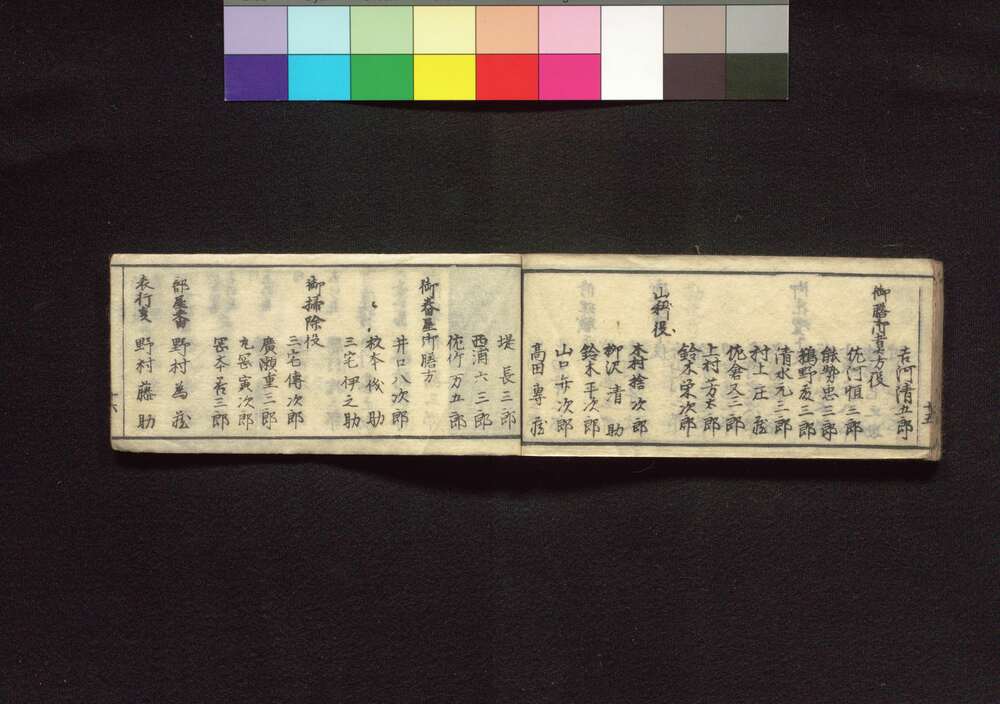 十五
吉河清五郎
佐河恒三郎
能勢忠三郎
鵜野友三郎
清水元三郎
村上庄蔵
佐倉又三郎
上村芳太郎
鈴木栄次郎
木村捨次郎
柳沢清助
鈴木平次郎
山口弁次郎
高田専蔵
堤長三郎
西浦六三郎
佐竹万五郎
御番屋御膳方
井口八次郎
枚本俊助
三宅伊之助
御掃除役
三宅傳次郎
廣瀬重三郎
九宮寅次郎
部屋番 野村為蔵
野村藤助
十六